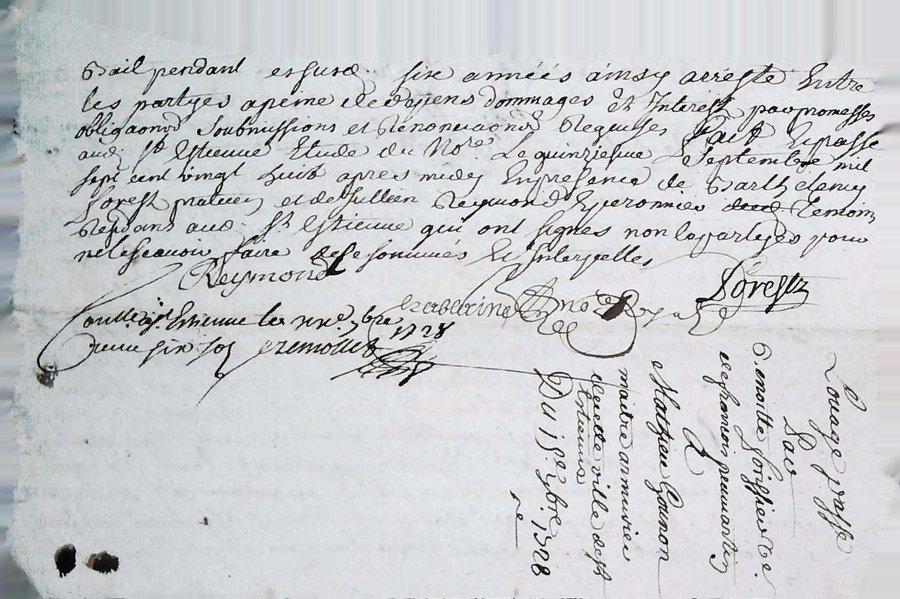 Bail pendant esdites six années ainsy arresté Entre
les partyes apeine de depens dommages Et Interest par promesses
obligaons Soubmissions et Renonciaons Requises Fait Epasse
aud. St Estienne Etude du Nore. Le quinziesme Septembre mil
sept cent vingt huit apres midy Enpresence de Barthelemy
Forest praticien et de Jullien Reymond Eperonnier Temoins
Residans aud. St Estienne qui ont signes non les partyes pour
ne le scavoir faire de ce sommés Et Interpelles
Reymond
Forest
Nore Royal
St Etienne le 7bre
1728
six sol
Louage passé
Par
Benoitte
Mathieu Gounon
maitre armurier
de cette ville de St
Estienne
Du 15e 7bre. 1728